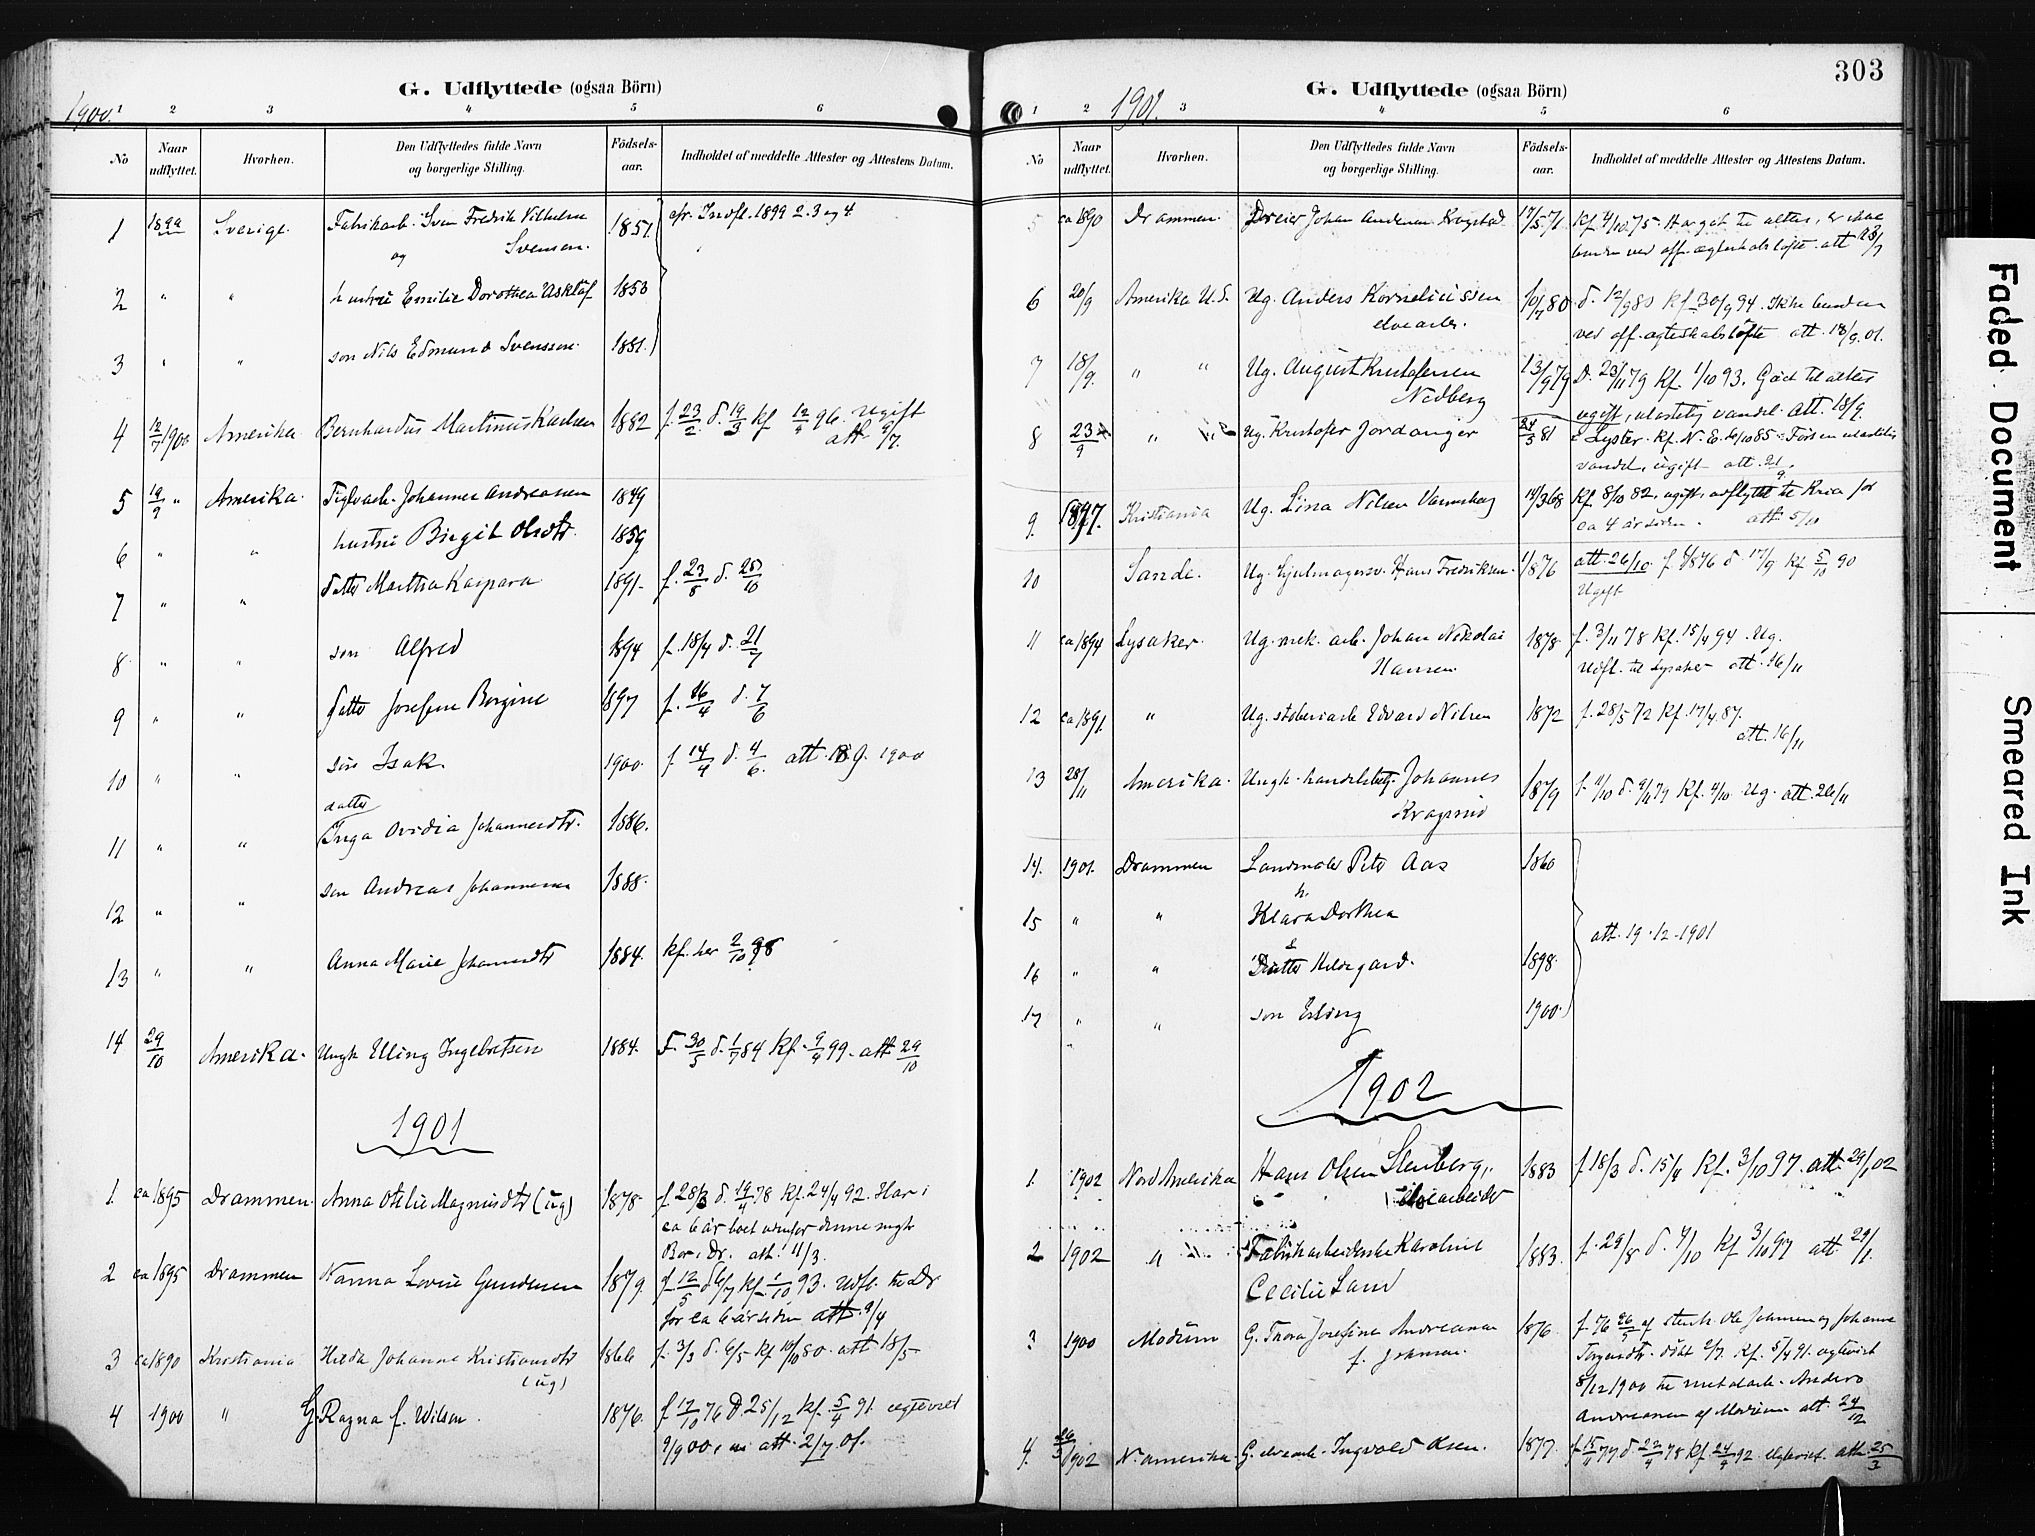 G. Udflyttede (ogsaa Börn)
1900.
1 2 3 4 5 6
No Naar udflyttet. Hvorhen. Den Udflyttedes fulde Navn og borgerlige Stilling. Fødsels-aar. Indholdet af meddelte Attester og Attestens Datum.
1 1899 Sverige. Fabrikarb. Sven Fredrik Vilhelm 1851. cfr. Indfl. 1899 2. 3 og 4.
og Svensen.
2 " " hustru Emilie Dorothea 1853
3 " " søn Nils Edmund Svensson. 1881.
4 12/7 1900 Amerika Bernhardus Martinus Karlsen 1882 f. 23/2 d. 19/3 kf 12/4 96. ugift
att. 9/7.
5 19/9 " Amerika. Teglarb. Johannes Andreasen 1849
6 " " hustru Birgit Olsdtr. 1859
7 " " datter Martha Kaspara 1891. f. 23/8 d. 25/10
8 " " søn Alfred 1894 f. 18/4 d. 21/7
9 " " datter Josefine Bergine 1897 f. 16/4 d. 7/6
10 " " søn Isak. 1900. f 14/4 d. 4/6. att. 18 9. 1900
datter
11 " " Inga Ovidia Johannesdtr. 1886.
12 " " søn Andreas Johannesen 1888.
13 " " Anna Marie Johannesdtr 1884. kf. her 2/10 98
14 29/10 Amerika. Ungk. Elling Ingebretsen 1884. F. 30/5 d. 1/7 84 kf. 9/4 99. att 29/10
1901
1 ca 1895 Drammen. Anna Otilie Magnusdtr (ug) 1878. f 28/3 d. 19/4 78 kf. 24/4 92. Har i
ca 6 år boet udenfor denne mgh.
Bor i Dr. att. 11/3.
2 ca 1895 Drammen Nanna Lovise Gundersen 1879. f. 12/5 d 6/7 kf. 1/10 93. Udfl. til Dr
for ca 6 år siden att. 9/4
3 ca 1890 Kristiania Hilda Johanne Kristiansdtr 1866 f. 3/3 d. 6/5 kf 10/10 80. att 18/5
(ug)
4 1900 " G. Ragna f. Wilson. 1876. f 17/10 76 D. 25/12 kf. 5/4 91. egteviet
9/9 00, att. 2/7 01.
303
G. Udflyttede (ogsaa Börn)
1901.
1 2 3 4 5 6
No Naar udflyttet. Hvorhen. Den Udflyttedes fulde Navn og borgerlige Stilling. Födsels-aar. Indholdet af meddelte Attester og Attestens Datum.
5 ca 1890 Drammen. Dreier Johan Andersen Krogstad 17/5 71. Kf. 4/10 75. Har gåt til alters, er ikke
bunden ved off. egteskabsløfte. att 23/7
6 20/9 Amerika U.S. Ug. Anders Korneliussen 10/7 80 d. 12/9 80 kf 30/9 94. Ikke bunden
elvearb. ved off. egteskabsløfte att. 18/9. 01.
7 18/9. " " Ug. August Kristofersen 13/9 79 D. 23/11 79 Kf. 1/10 93. Gåt til alters
Nedberg ugift, ulastelig vandel. Att. 18/9.
8 23/9 " " Ug. Kristofer Jordanger 24/3 81 i Lyster. Kf. N. E. 4/10 85. Før en ulastelig
vandel, ugift att. 21/9.
9. 1897. Kristiania Ug. Lina Nilsen 14/3 68 kf 8/10 82. ugift, udflyttet til Kria for
ca 4 år siden. att. 5/10
10 Sande. Ug. hjulmagersv. Hans Fredriksen. 1876 att. 26/10. d. 17/9 kf 5/10 90
Ugift
11 ca 1894 Lysaker. Ug. mek. arb. Johan Nikolai 1878. f. 3/11 78 kf. 15/4 94. Ug.
Hansen Udfl. til Lysaker att. 16/11
12 ca 1891. " Ug. støberiarb Edvard Nilsen 1872 f. 28/5 72 Kf. 17/4 87.
att. 16/11
13 28/11 Amerika. Ungk. handelsbetj. Johannes 1879 f. 11/10 d. 9/11 79 Kf. 4/10 Ug. att. 26/11
Kragmo
14. 1901. Drammen Landmåler Peter Aas 1860
h.
15 " " Klara Dorthea
16 " " Datter Hildegard. 1898.
att. 19.12.1901
17 " " søn Erling 1900.
1902
1. 1902 Nord Amerika Hans Olsen Stenberg, 1883 f 18/3 d. 15/4 Kf. 3/10 97. att. 29/1 02
elvearbeider
2 1902 " Fabrikarbeiderske Karoline 1883. f. 29/8 d. 4/10 kf 3/10 97 att. 29/1.
Cecilie Sand
3 1900 Modum G. Thora Josefine Andreassen 1876. f. 76 26/5 af stenh. Ole Johnsen og Johanne
f. Johnsen. Torgersdtr. døbt 2/7. Kf. 5/4 91. egteviet
8/12 1900 til metalarb. Anders
Andreassen af Modum att. 24/12
4. 26/3 1902 N. amerika. G. elvearb. Ingvald Olsen. 1877. f 15/11 77 d. 22/4 78 kf. 24/4 92. Egteviet. att. 25/3
Faded Document
Smeared Ink